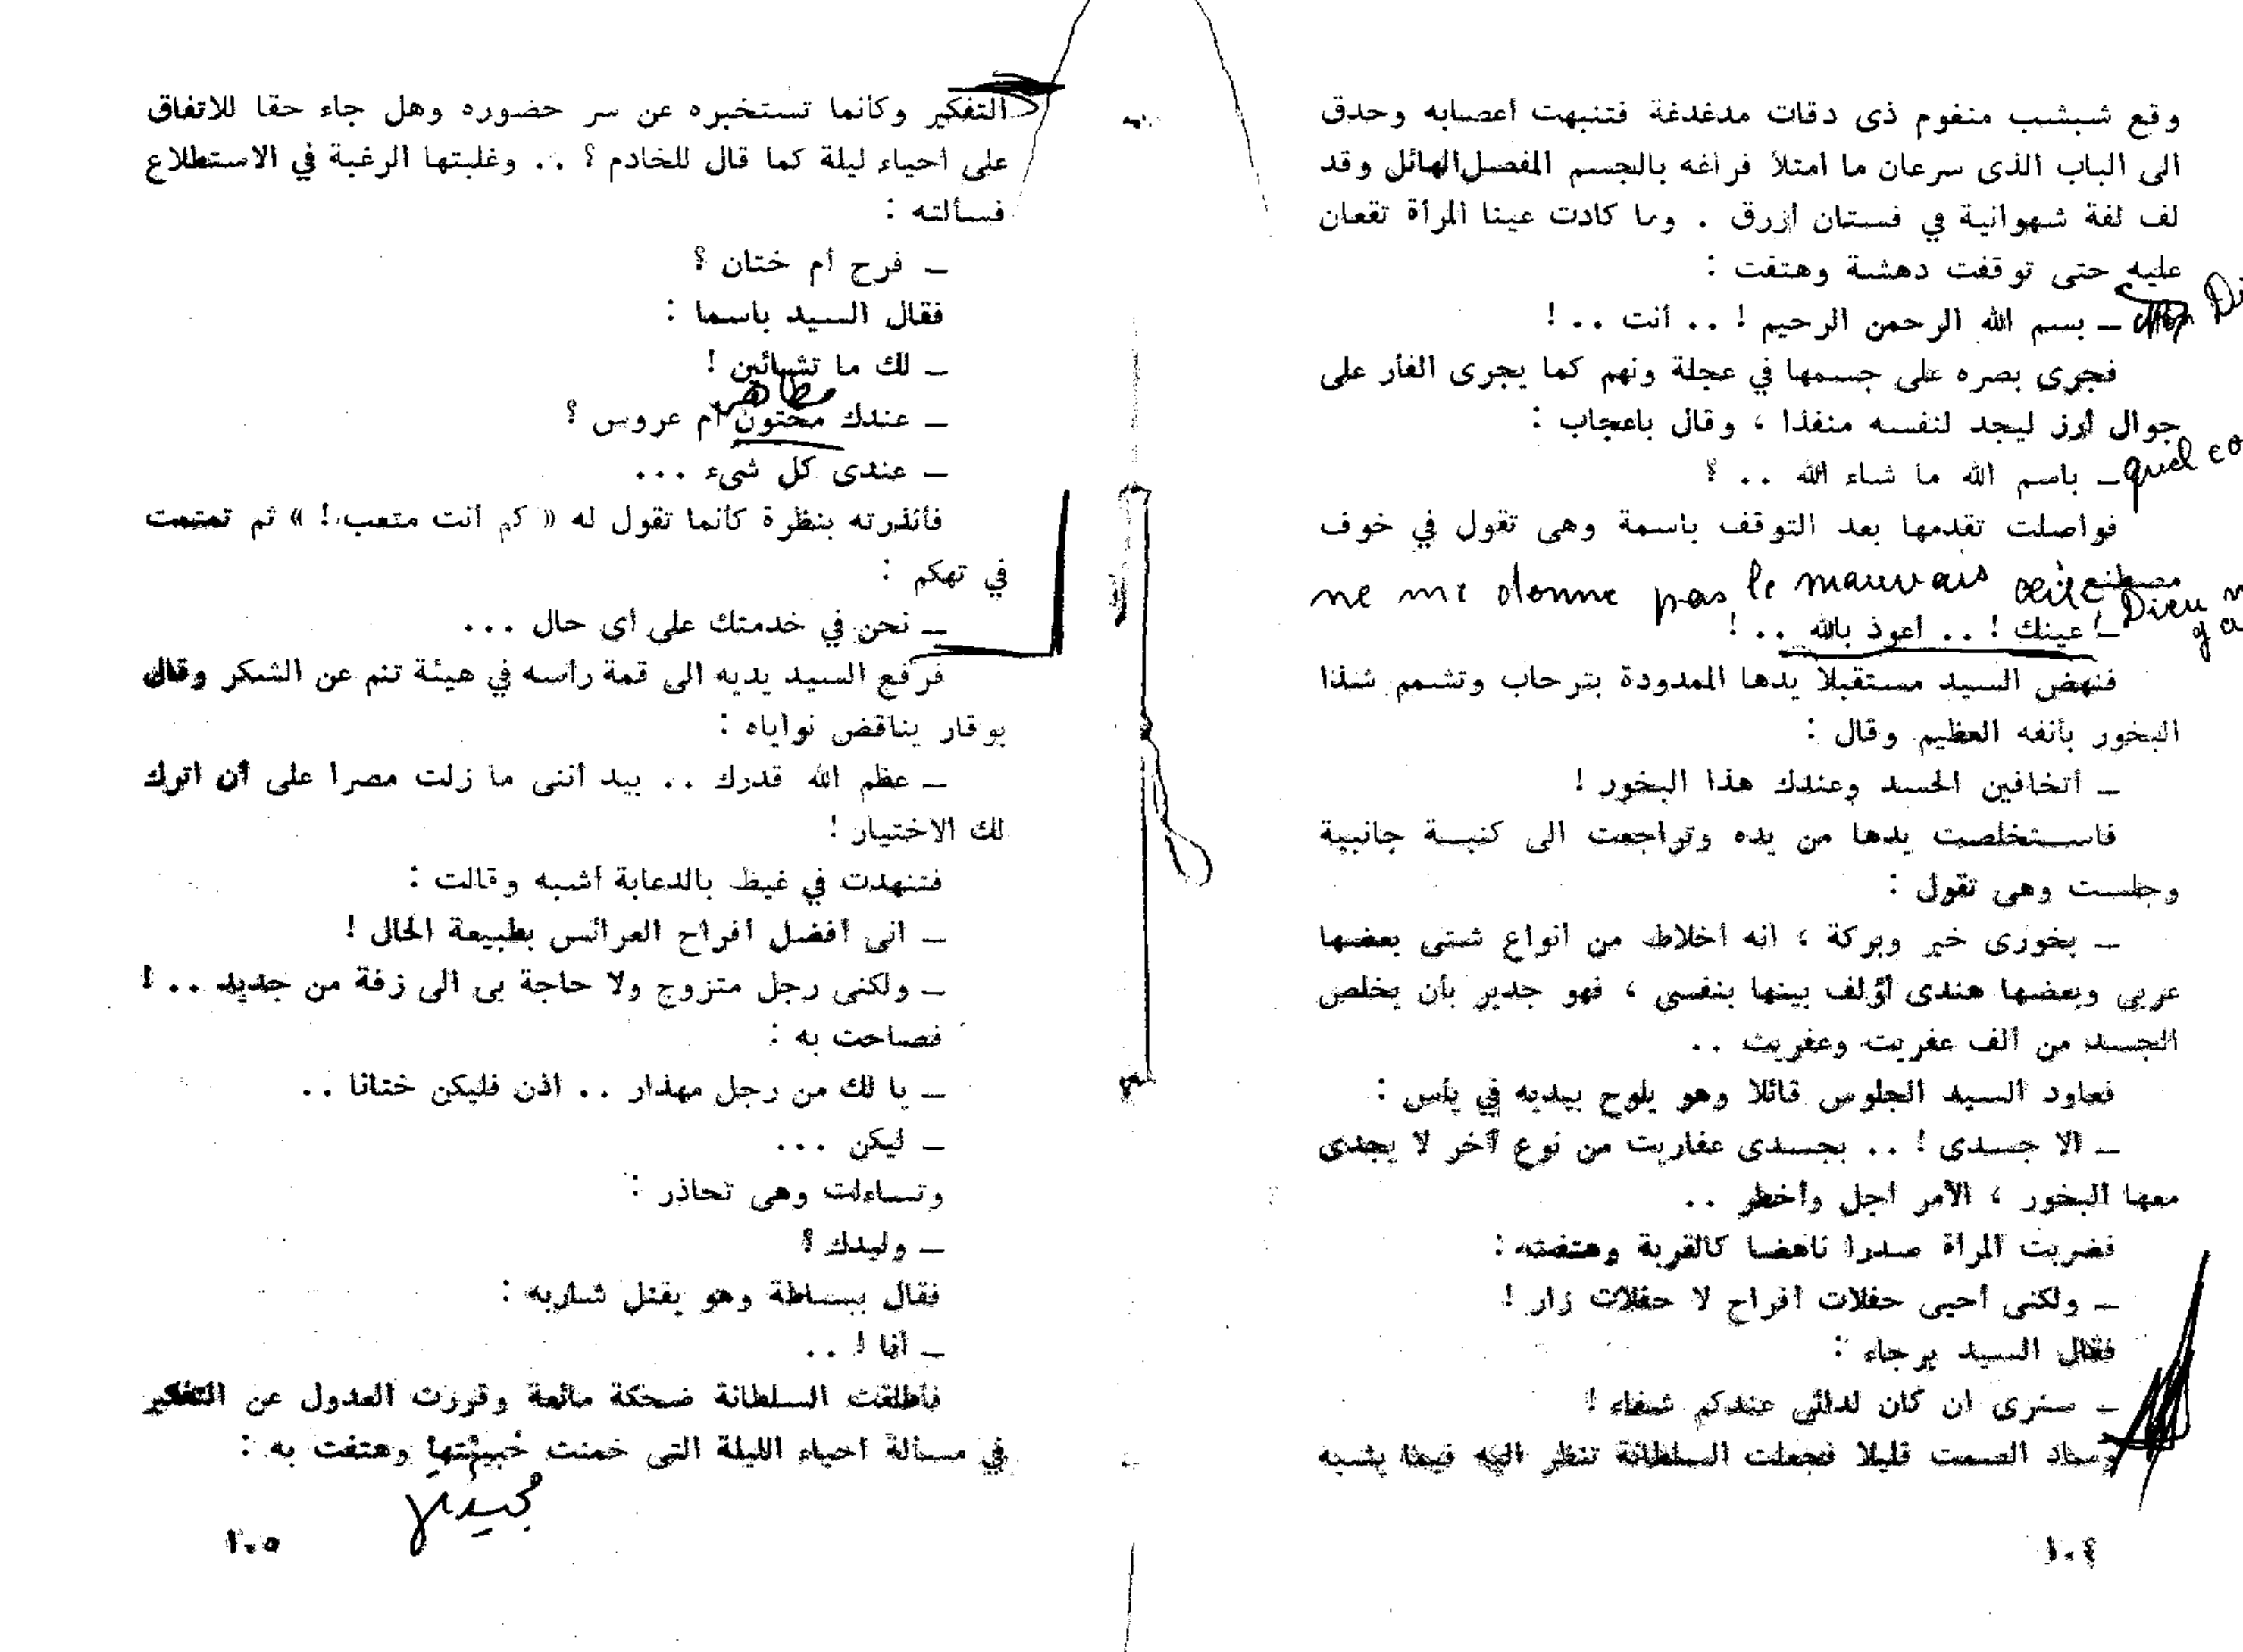 وقع شبشب منغوم ذى دقات مدغدغة فتنبهت أعصابه وحدق
الى الباب الذى سرعان ما امتلأ فراغه بالجسم المفصل الهائل وقد
لف لفة شهوانية في فستان أزرق . وما كادت عينا المرأة تقعان
عليه حتى توقفت دهشة وهتفت :
Mon Di
ـ بسم الله الرحمن الرحيم ! .. أنت .. !
فجرى بصره على جسمها في عجلة ونهم كما يجرى الفأر على
جوال أرز ليجد لنفسه منفذا ، وقال باعجاب :
quel co
ـ باسم الله ما شاء الله .. ؟
فواصلت تقدمها بعد التوقف باسمة وهى تقول في خوف
مصطنع :
ne me donne pas le mauvais œil
Dieu m
ga
ـ عينك ! .. أعوذ بالله .. !
فنهض السيد مستقبلا يدها الممدودة بترحاب وتشمم شذا
البخور بأنفه العظيم وقال :
ـ أتخافين الحسد وعندك هذا البخور !
فاستخلصت يدها من يده وتراجعت الى كنبة جانبية
وجلست وهى تقول :
ـ بخورى خير وبركة ، انه أخلاط من أنواع شتى بعضها
عربى وبعضها هندى أؤلف بينها بنفسى ، فهو جدير بأن يخلص
الجسد من ألف عفريت وعفريت ..
فعاود السيد الجلوس قائلا وهو يلوح بيديه في يأس :
ـ الا جسدى ! .. بجسدى عفاريت من نوع آخر لا يجدى
معها البخور ، الأمر أجل وأخطر ..
فضربت المرأة صدرا ناهضا كالقربة وهتفت :
ـ ولكنى أحيى حفلات أفراح لا حفلات زار !
فقال السيد برجاء :
ـ سنرى ان كان لدائى عندكم شفاء !
وساد الصمت قليلا فجعلت السلطانة تنظر اليه فيما يشبه
١٠٤
التفكير وكأنما تستخبره عن سر حضوره وهل جاء حقا للاتفاق
على احياء ليلة كما قال للخادم ؟ .. وغلبتها الرغبة في الاستطلاع
فسألته :
ـ فرح أم ختان ؟
فقال السيد باسما :
ـ لك ما تشائين !
مطاهر
ـ عندك مختون أم عروس ؟
ـ عندى كل شىء ...
فأنذرته بنظرة كأنما تقول له « كم أنت متعب ! » ثم تمتمت
في تهكم :
ـ نحن في خدمتك على أى حال ...
فرفع السيد يديه الى قمة رأسه في هيئة تنم عن الشكر وقال
بوقار يناقض نواياه :
ـ عظم الله قدرك .. بيد أننى ما زلت مصرا على أن أترك
لك الاختيار !
فتنهدت في غيظ بالدعابة أشبه وقالت :
ـ انى أفضل أفراح العرائس بطبيعة الحال !
ـ ولكنى رجل متزوج ولا حاجة بى الى زفة من جديد .. !
فصاحت به :
ـ يا لك من رجل مهذار .. اذن فليكن ختانا ..
ـ ليكن ...
وتساءلت وهى تحاذر :
ـ وليدك ؟
فقال ببساطة وهو يفتل شاربه :
ـ أنا ! ..
فأطلقت السلطانة ضحكة مائعة وقررت العدول عن التفكير
في مسألة احياء الليلة التى خمنت خبيئتها وهتفت به :
١٠٥